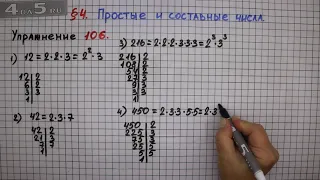 4au5.ru
§4. Простые и составные числа.
Упражнение 106.
1) 12 = 2·2·3 = 2²·3
12|2
6|2
3|3
1|
2) 42 = 2·3·7
42|2
21|3
7|7
1|
3) 216 = 2·2·2·3·3·3 = 2³·3³
216|2
108|2
54|2
27|3
9|3
3|3
1|
4) 450 = 2·3·3·5·5 = 2·3
450|2
225|3
75|3
25|5
5|5
1|